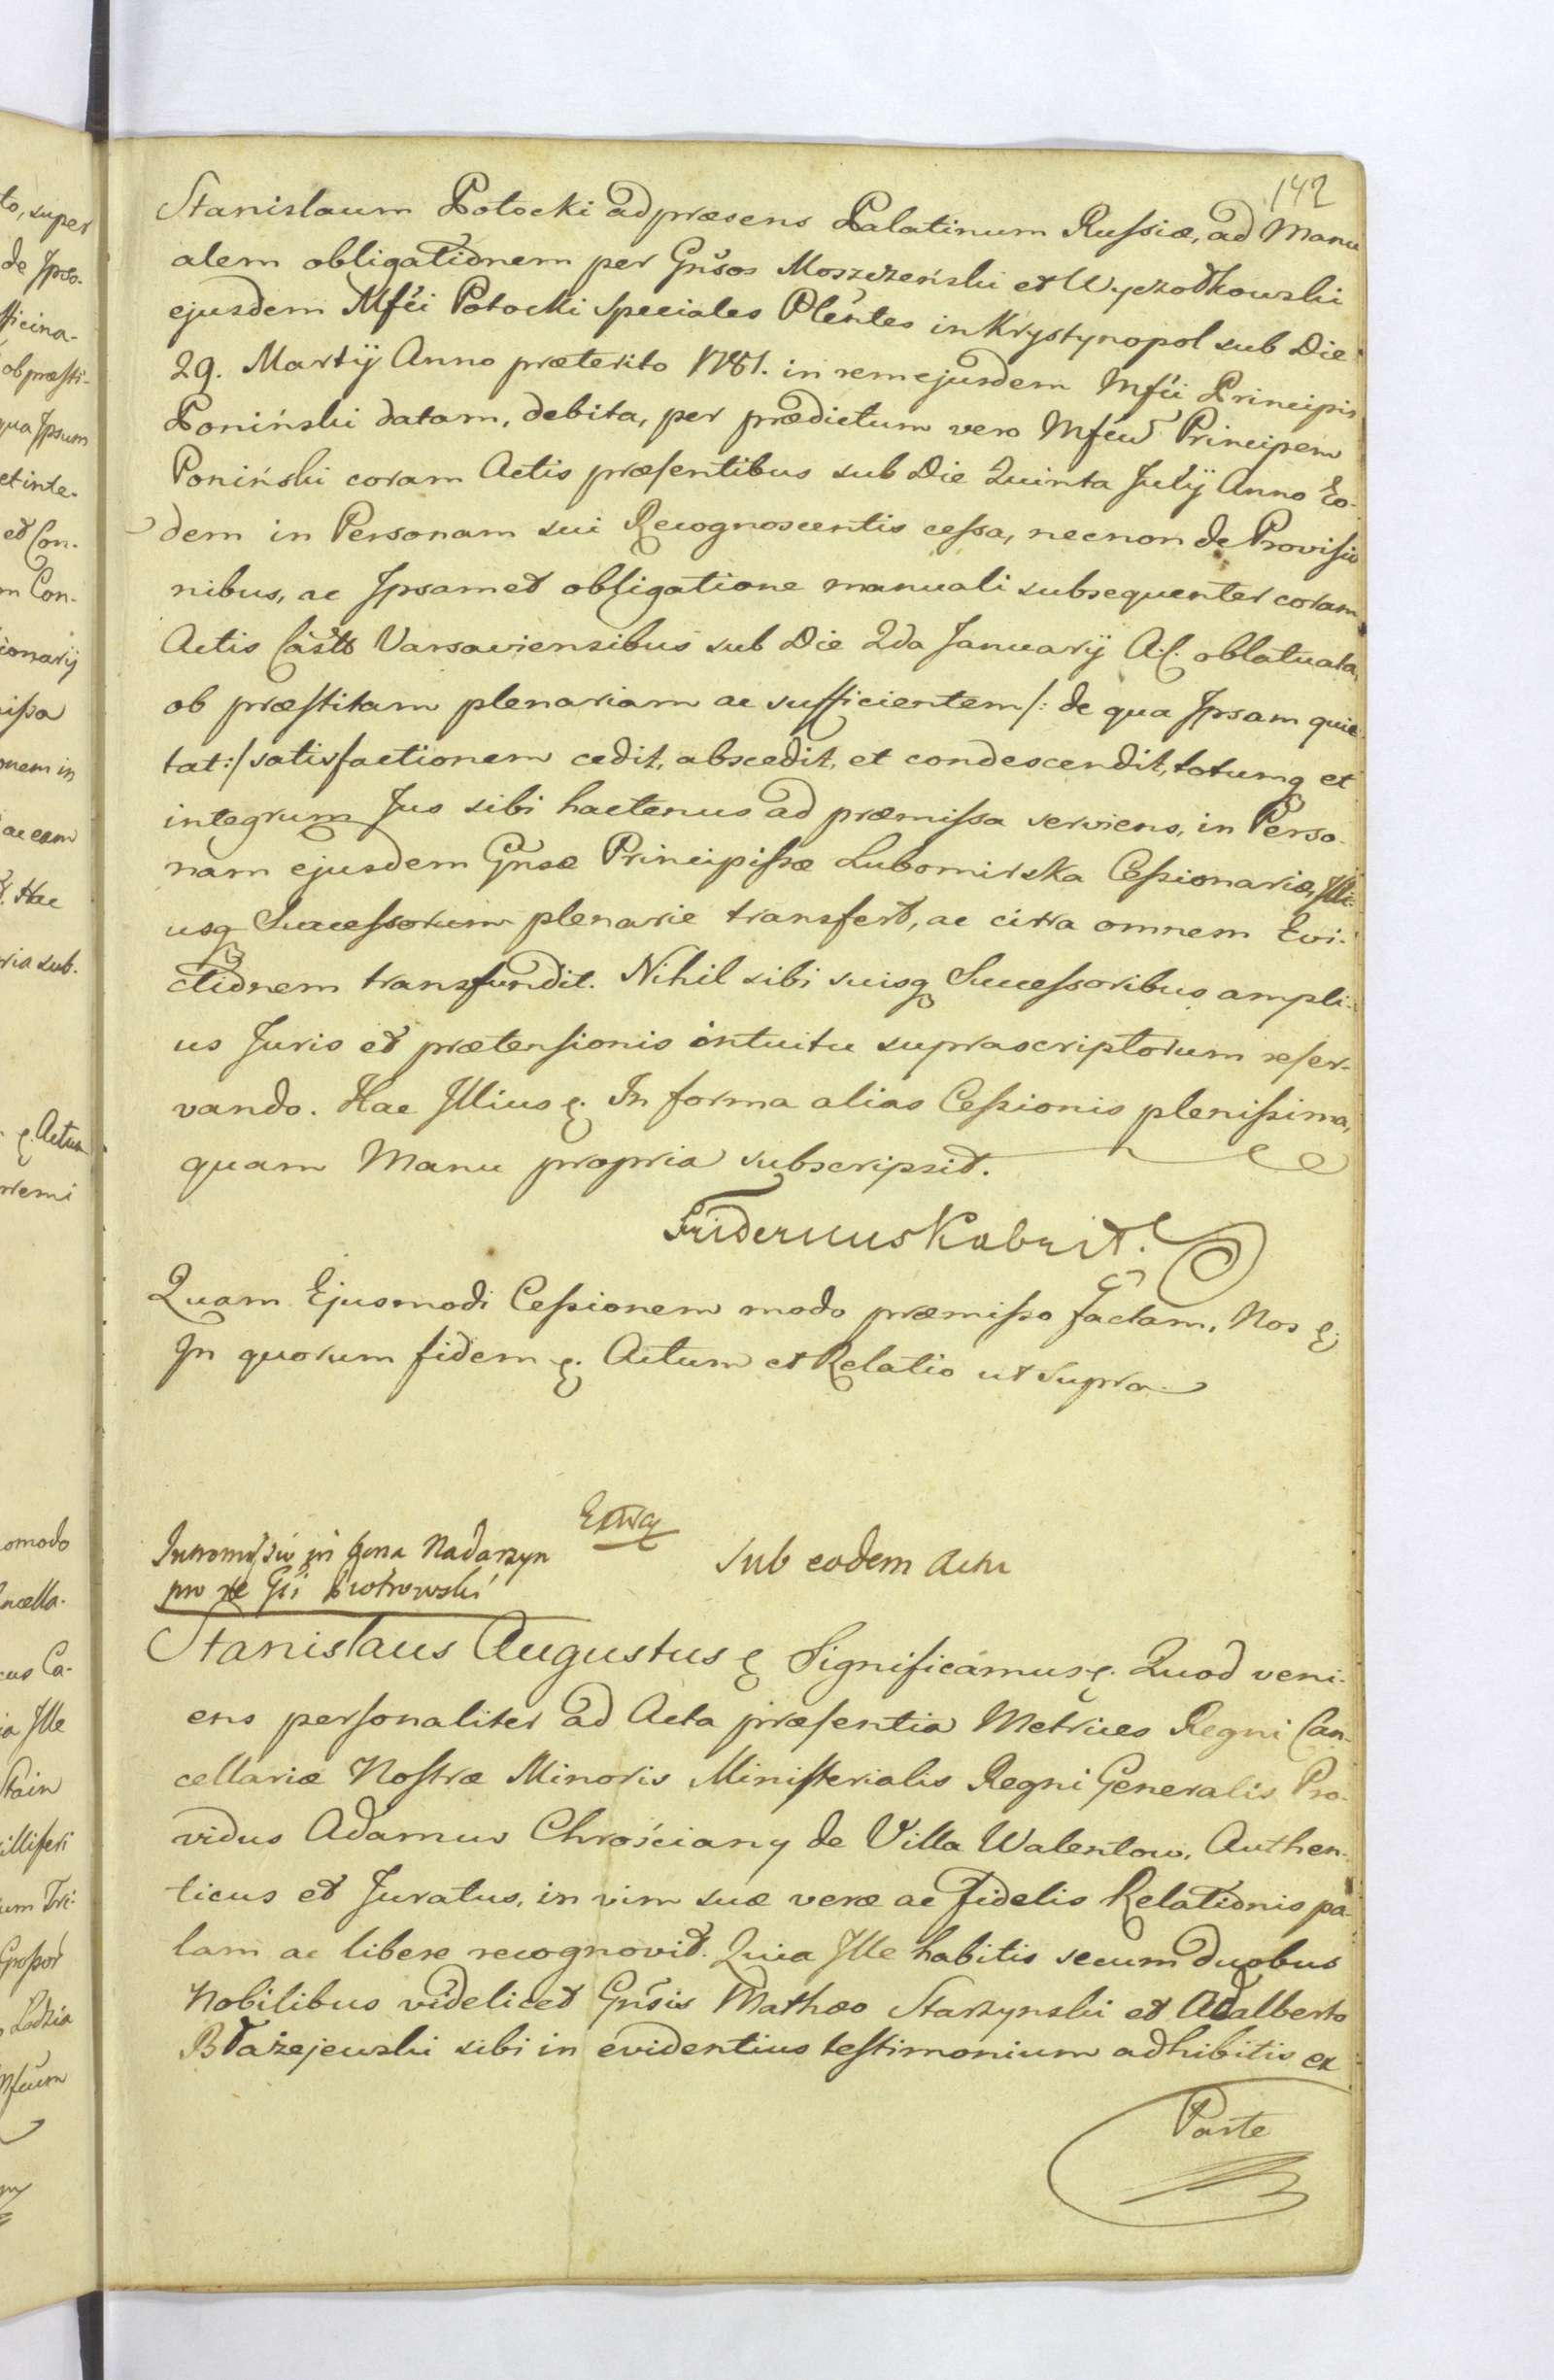 142
Stanislaum Potocki ad præsens Palatinum Russiæ, ad Manu
alem obligationem per Gnsos Moszczeński et Wyczołkowski
ejusdem Mfci Potocki speciales Plentes in Krystynopol sub Die
29. Martÿ Anno præterito 1781. in rem ejusdem Mfci Principis
Poniński datam, debita, per prædictum vero Mfcum Principem
Poniński coram Actis præsentibus sub Die Quinta Julÿ Anno Eo-
dem in Personam sui Recognoscentis cessa, necnon de Provisio
nibus, ac Ipsamet obligatione manuali subsequenter coram
Actis Castr Varsaviensibus sub Die 2da Januarÿ A.C. oblatuata,
ob præstitam plenariam ac sufficientem /: de qua Ipsam quie
tat :/ satisfactionem cedit, abscedit, et condescendit, totumq et
integrum Jus sibi hactenus ad præmissa serviens, in Perso-
nam ejusdem Gnsæ Principissæ Lubomirska Cessionariæ, Illi-
usq Successorum plenarie transfert, ac citra omnem Evi-
ctionem transfundit. Nihil sibi suisq Successoribus ampli-
us Juris et prætensionis intuitu suprascriptorum reser-
vando. Hac Illius &. In forma alias Cessionis plenissima,
quam Manu propria subscripsit.
Fridericus Kabryt.
Quam Ejusmodi Cessionem modo præmisso factam, Nos &
In quorum fidem &. Actum et Relatio ut supra
Intromissio in bona Nadarzyn
pro re Gsi Piotrowski
Extra
Sub eodem Actu
Stanislaus Augustus & Significamus &. Quod veni-
ens personaliter ad Acta præsentia Metrices Regni Can-
cellariæ Nostræ Minoris Ministerialis Regni Generalis Pro-
vidus Adamus Chrościany de Villa Walentow, Authen-
ticus et Juratus, in vim suæ veræ ac fidelis Relationis pa-
lam ac libere recognovit. Quia Ille habitis secum duobus
Nobilibus videlicet Gnsis Mathæo Starzynski et Adalberto
Błażejewski sibi in evidentius testimonium adhibitis ex
Parte